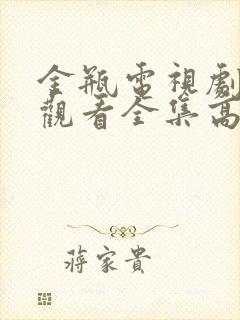 金瓶電視劇
觀看全集高
蔣家貴